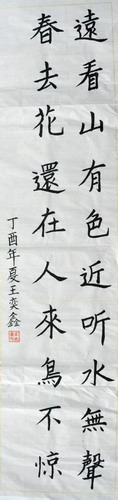 遠看山有色近听水無聲
春去花還在人來鳥不惊
丁酉年夏王奕鑫